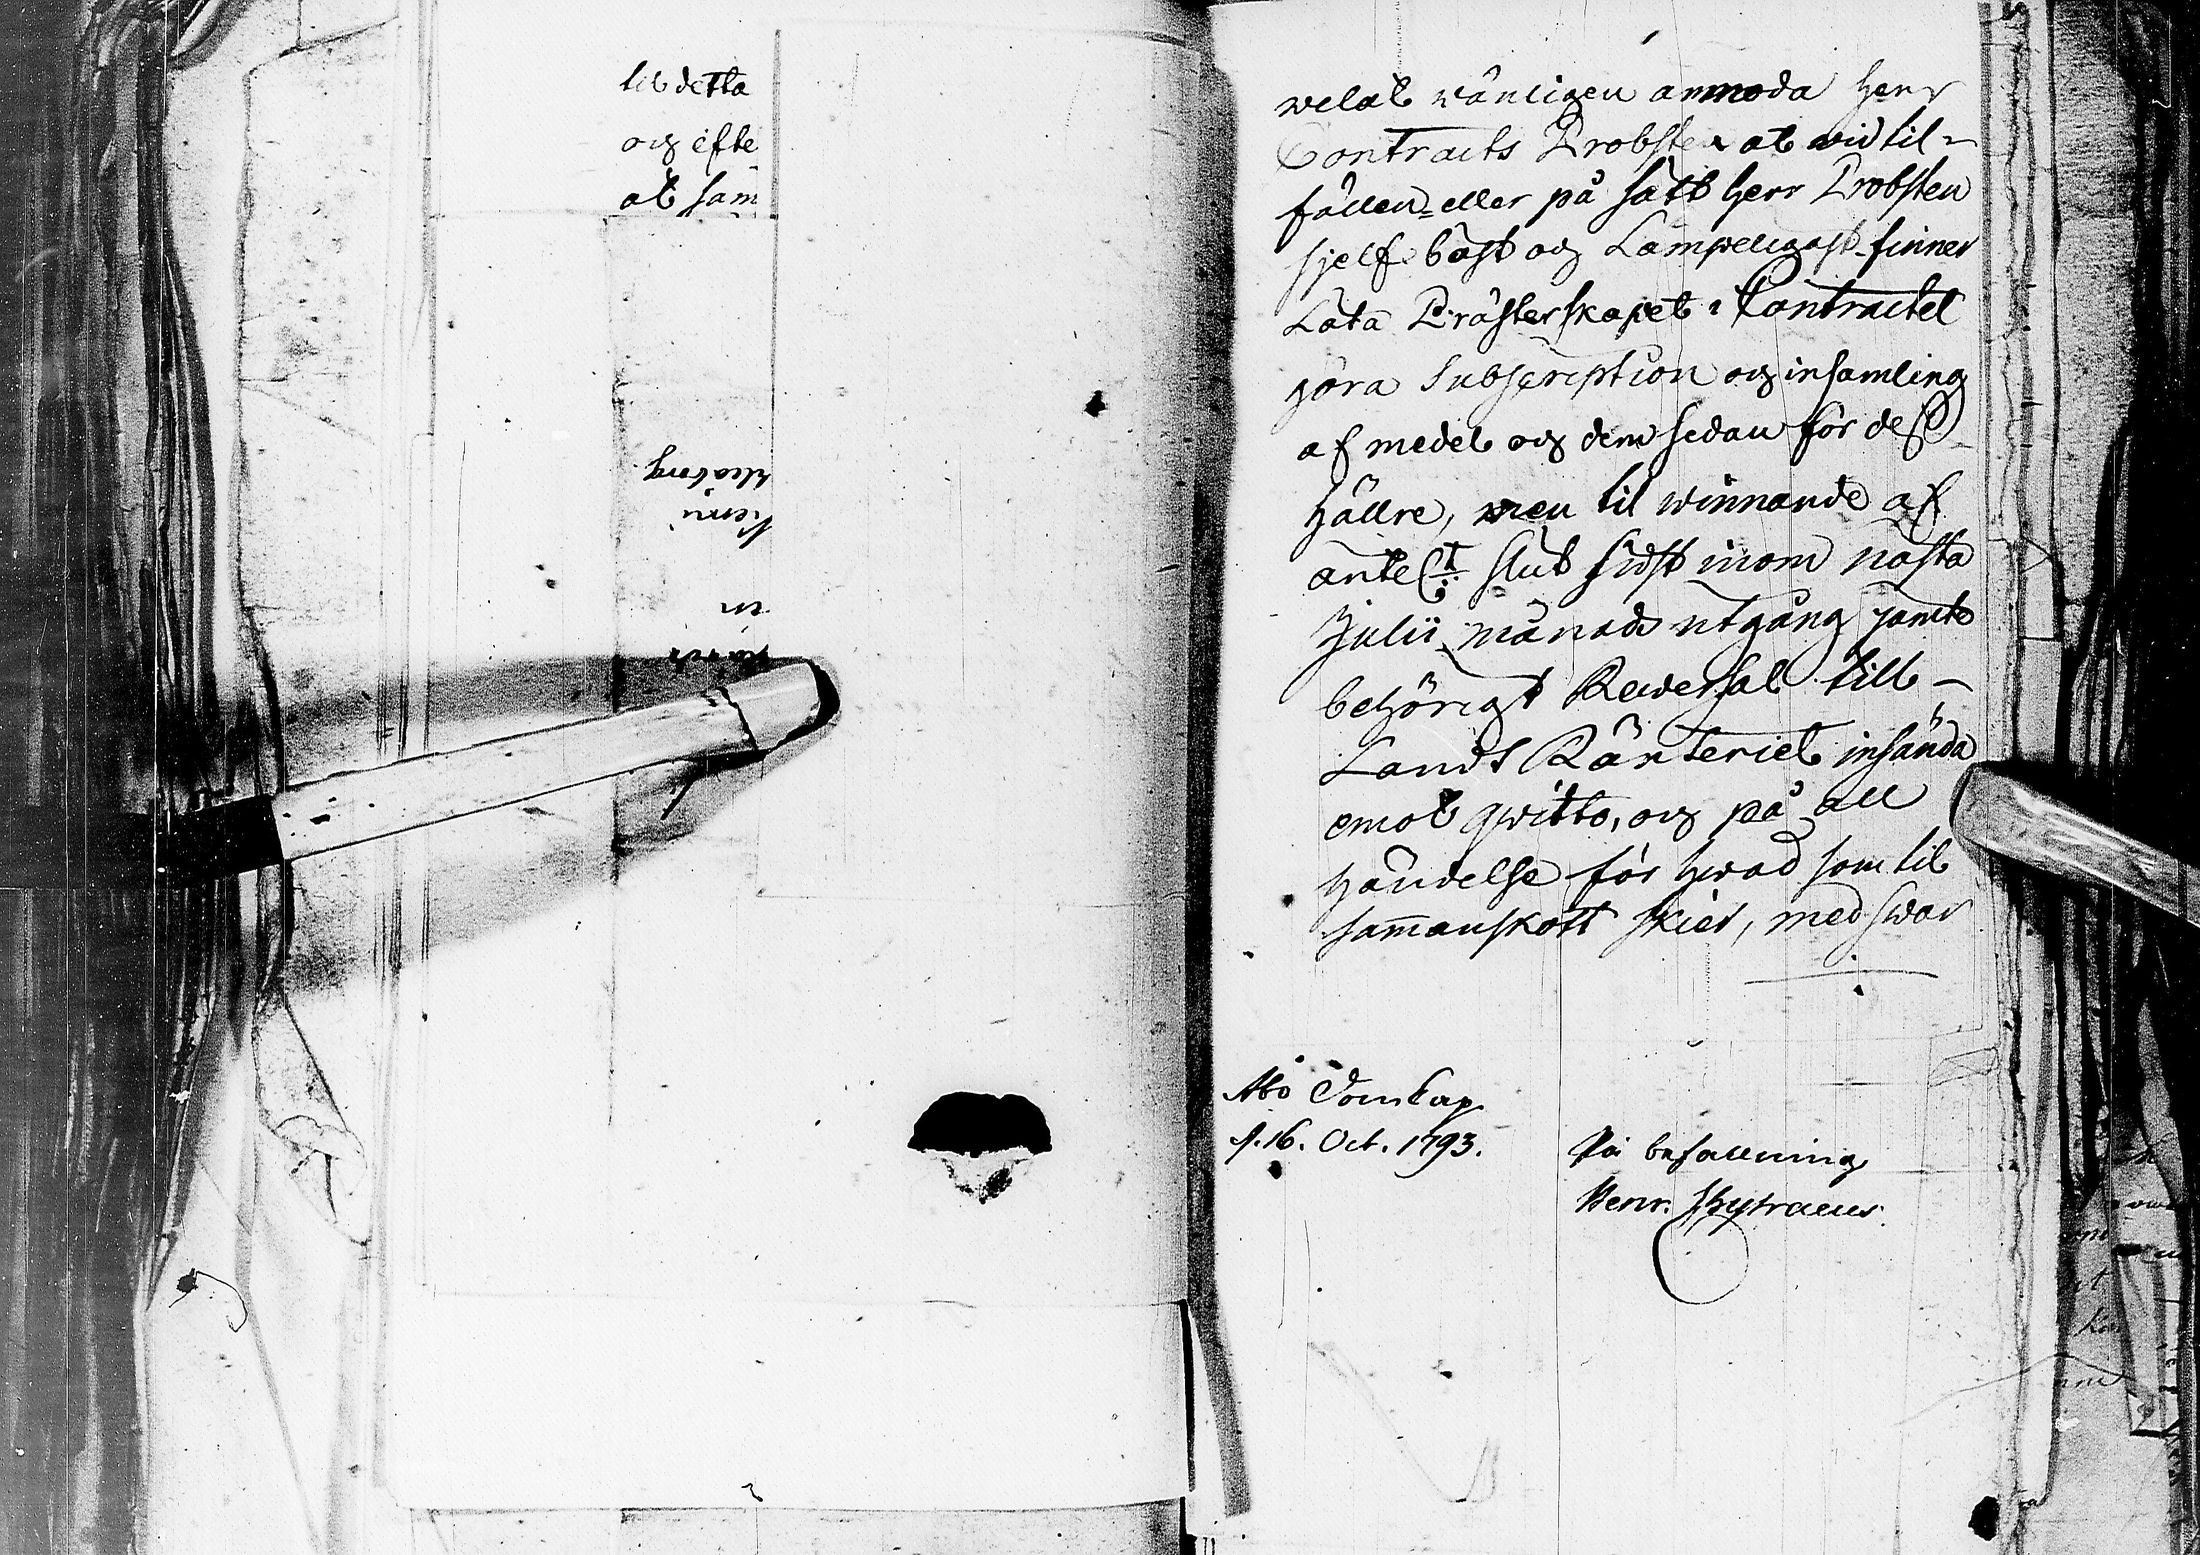 til detta
och efte
at sam
welat wänligen anmoda Herr
Contracts Probsten at wid til-
fällen eller på sätt Herr Probsten
sjelf bäst och Lämpeligast finner
Låta Prästerskapet i Contractet
göra Subscription och insamling
af medel och dem sedan för dess
hällre, men til winnande af
slut sidst inom nästa
Julii månads utgång jämte
behörigt Reversal till
Lands Ränteriet insända
emot qwitto, och på all
händelse för hwad som til
sammanskott skier, med swar
Åbo DomCap.
d. 16. Oct. 1793.
På befallning
Henr.